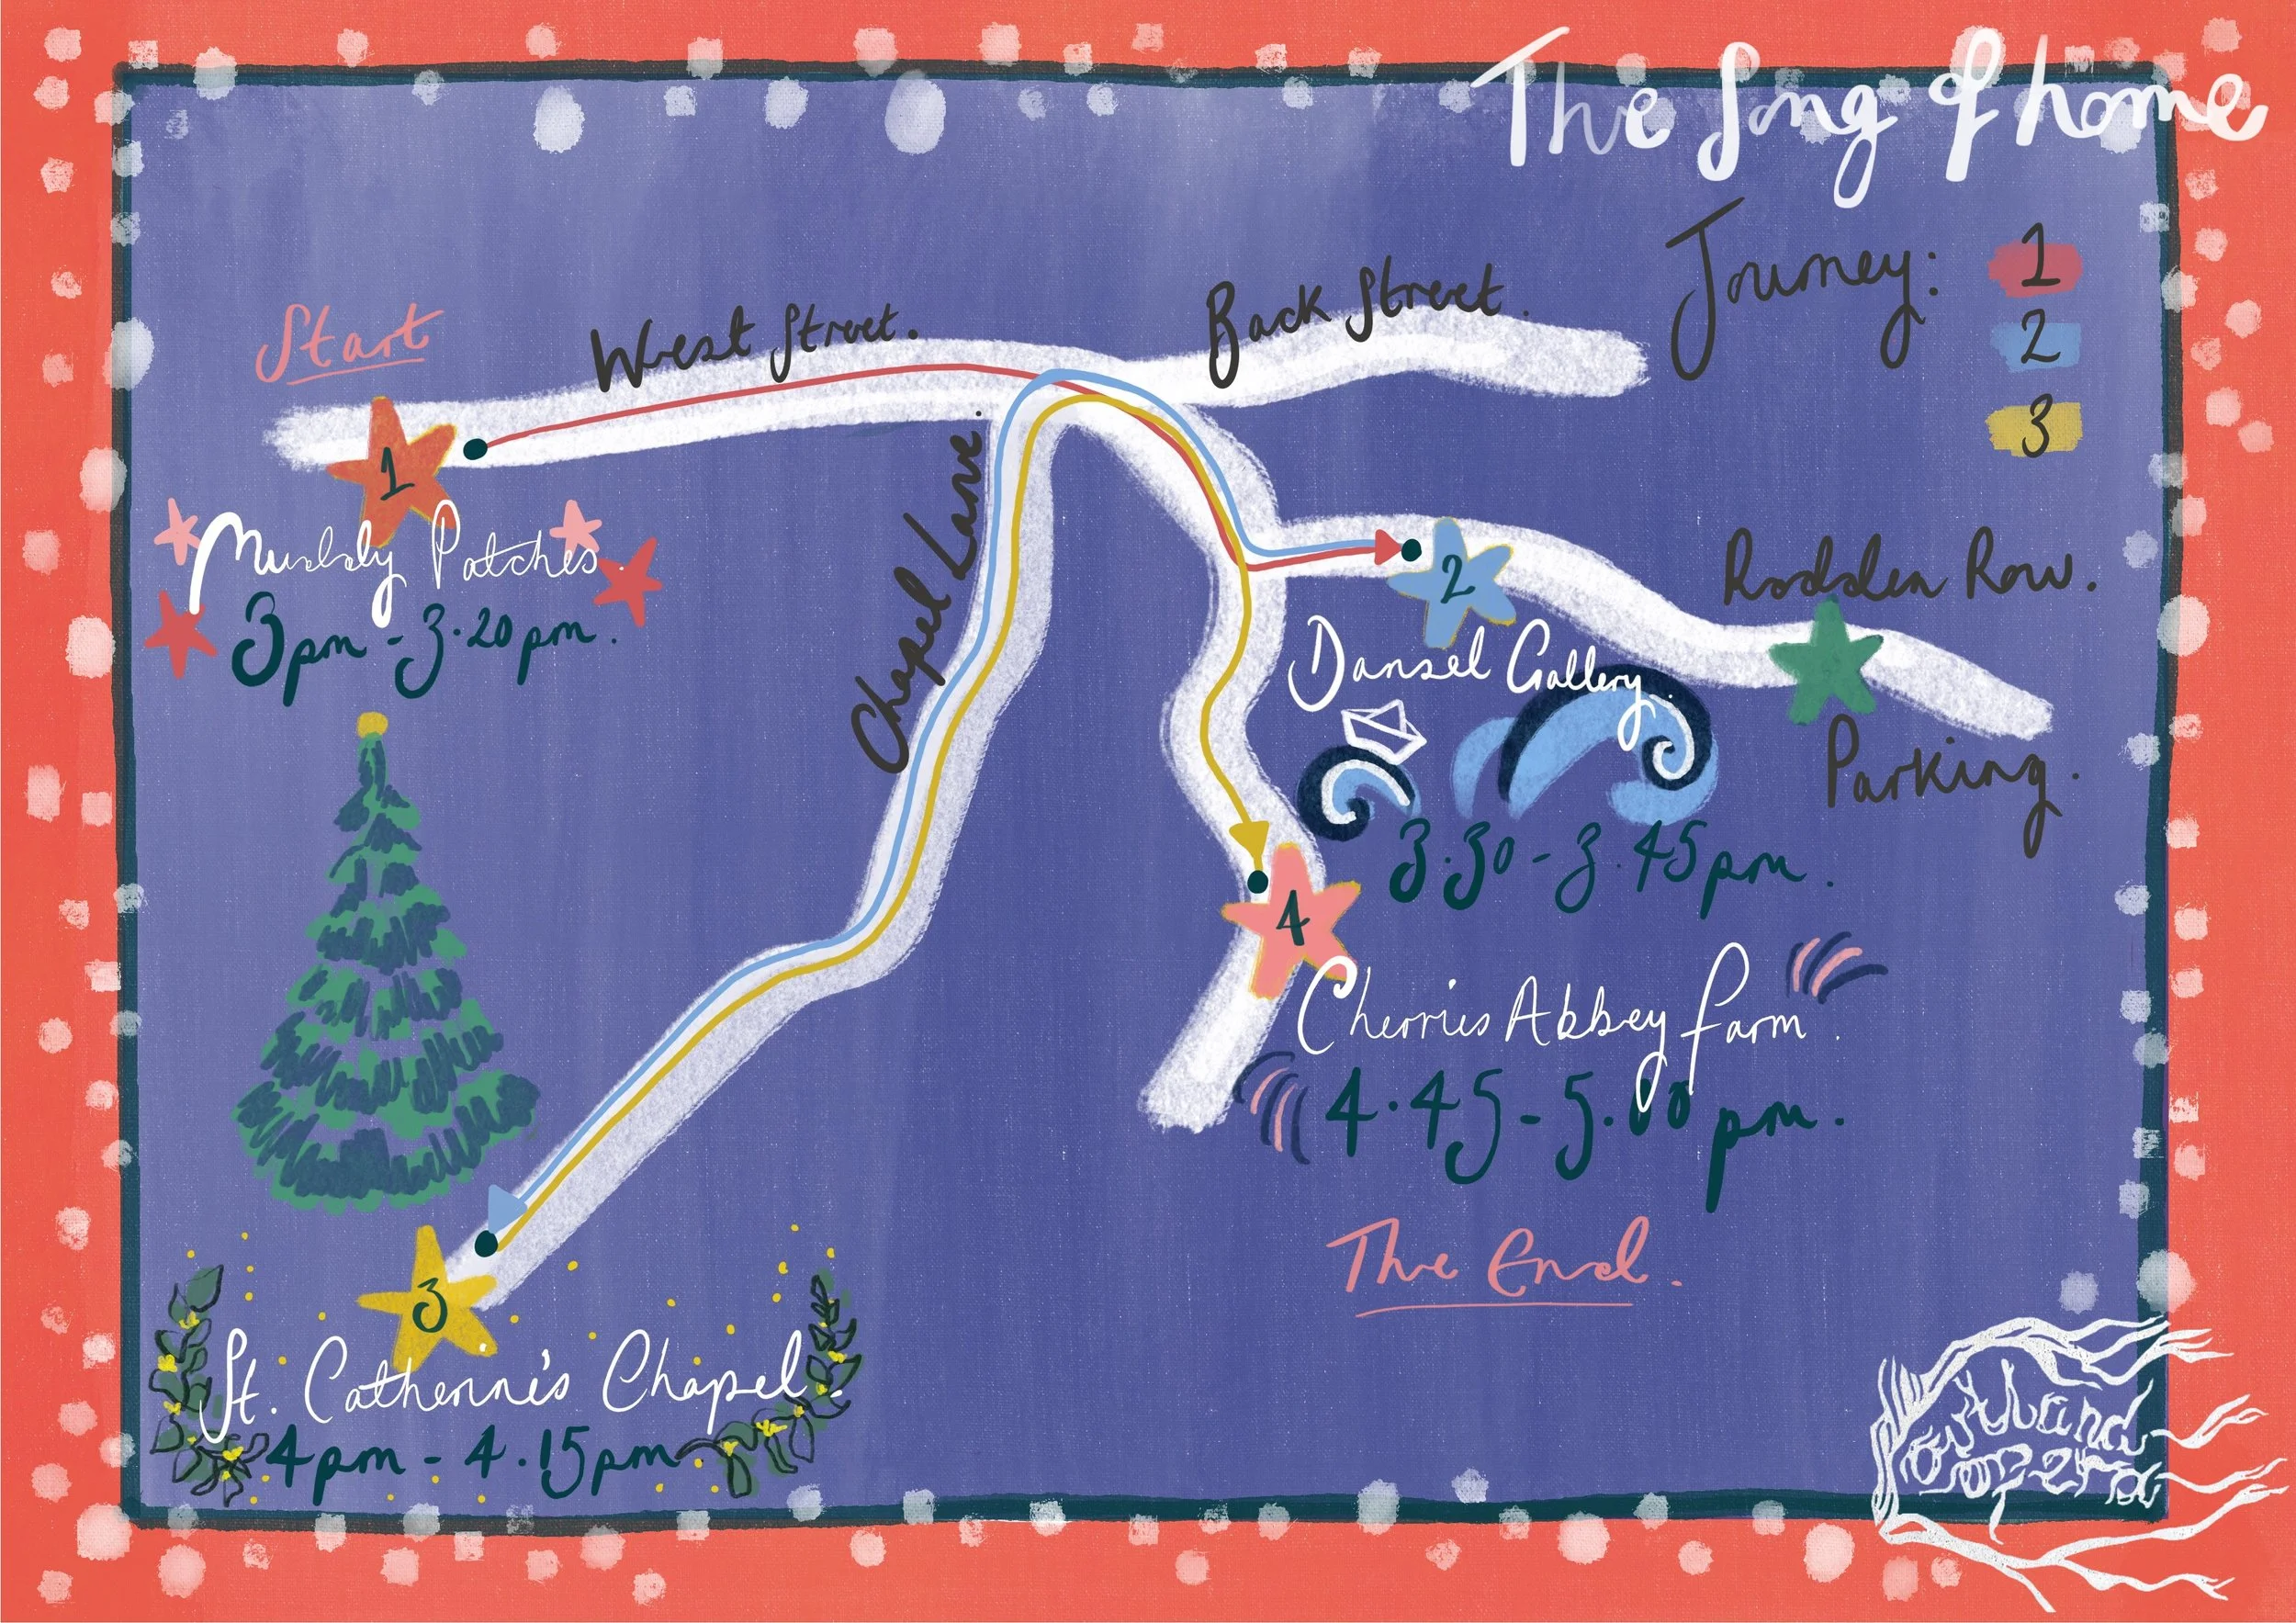 The Song of home
Journey:
1
2
3
Start
West Street.
Back Street.
1
Muddy Patches.
3pm - 3.20pm.
Chapel Lane.
2
Dansel Gallery.
3.30 - 3.45pm.
Rodden Row.
Parking.
4
Cherries Abbey Farm.
4.45 - 5.00pm.
The End.
3
St. Catherine's Chapel.
4pm - 4.15pm
Portland
opera